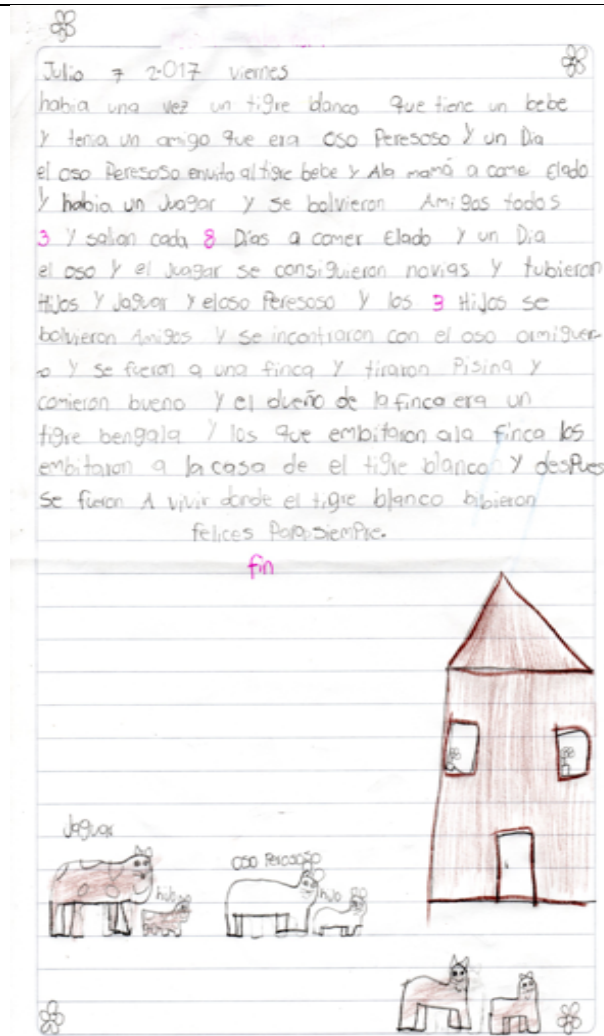 Julio 7 2017 viernes
habia una vez un tigre blanco que tiene un bebe
y tenia un amigo que era oso Peresoso y un Dia
el oso Peresoso envito al tigre bebe y Ala mamá a come Elado
y habia un Juagar y se bolvieron Amigos todos
3 y salian cada 8 Días a comer Elado y un Dia
el oso y el Juagar se consiguieron novias y tubieron
Hijos y Jaguar y eloso Peresoso y los 3 Hijos se
bolvieron Amigos y se incontraron con el oso ormiguer-
o y se fueron a una finca y tiraron Pisina y
comieron bueno y el dueño de la finca era un
tigre bengala y los que embitaron ala finca los
embitaron a la casa de el tigre blanco y despues
se fueron A vivir donde el tigre blanco bibieron
felices Para siempre.
fin
Jaguar
hijo
oso Perososo
hijo